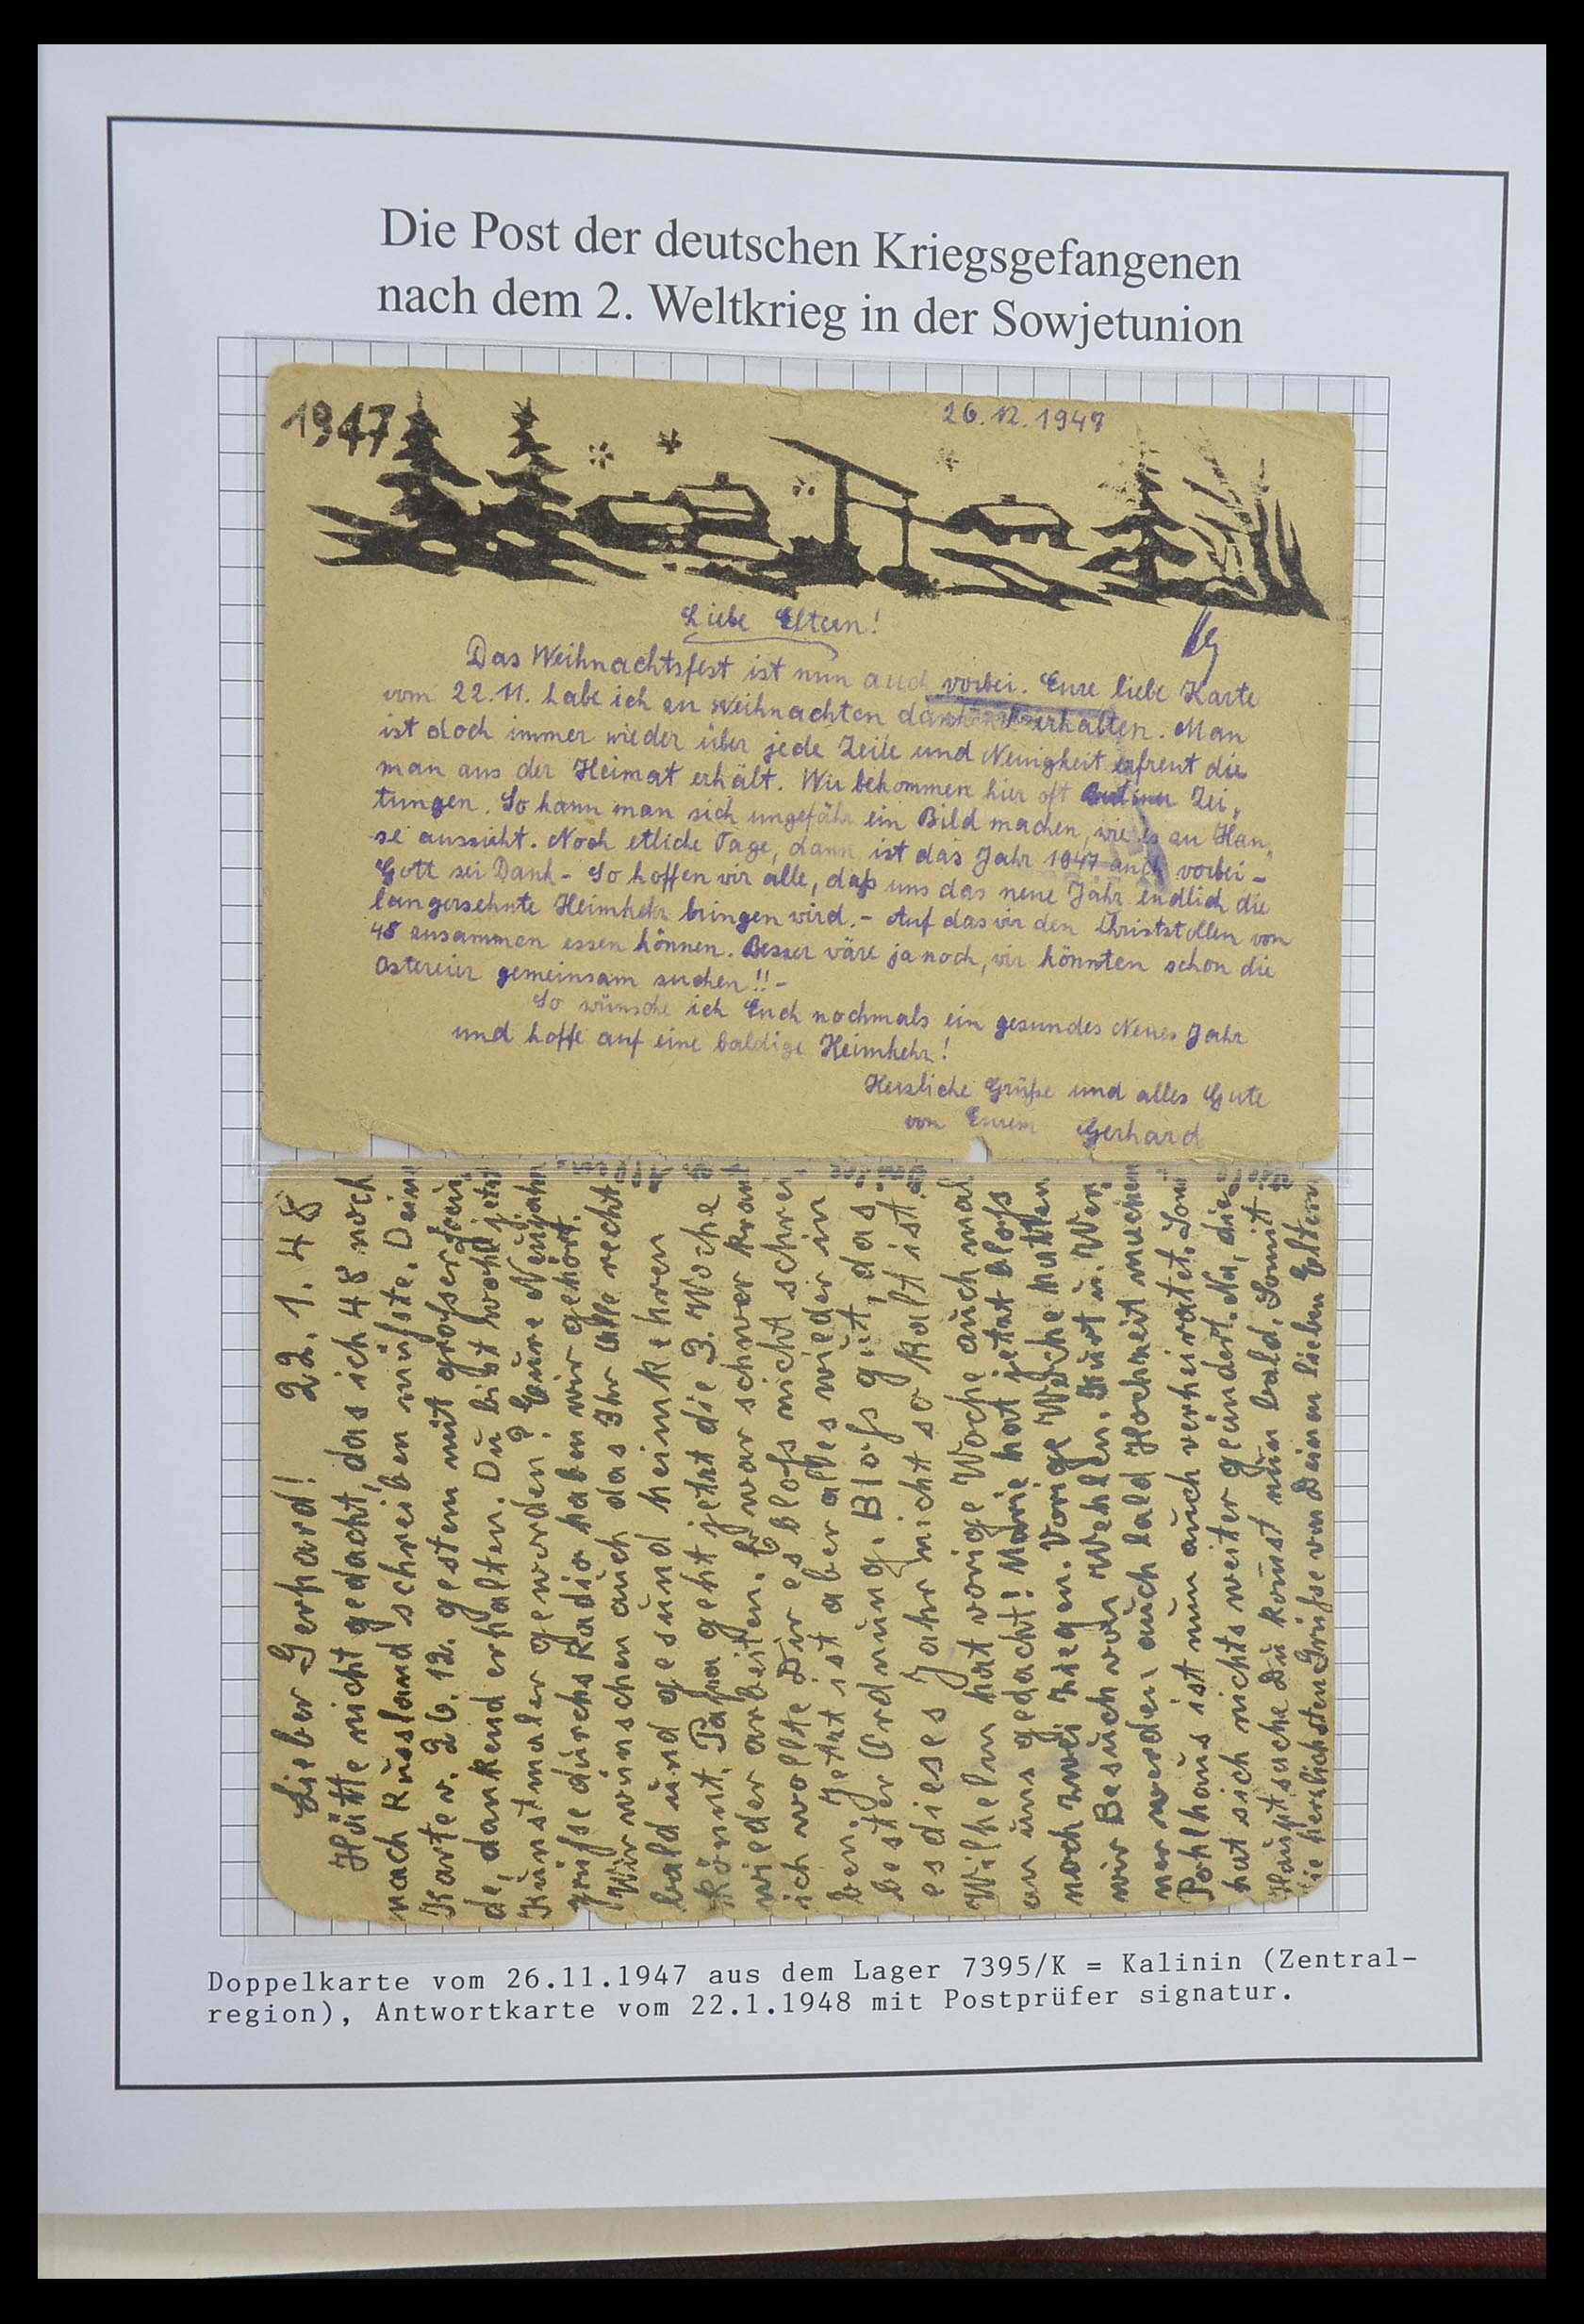 Die Post der deutschen Kriegsgefangenen
nach dem 2. Weltkrieg in der Sowjetunion
1947
26.12.1947
Liebe Eltern!
Das Weihnachtsfest ist nun auch vorbei. Eure liebe Karte
vom 22.11. habe ich zu Weihnachten dankend erhalten. Man
ist doch immer wieder über jede Zeile und Neuigkeit erfreut die
man aus der Heimat erhält. Wir bekommen hier oft Berliner Zei-
tungen. So kann man sich ungefähr ein Bild machen, wie es zu Hau-
se aussieht. Noch etliche Tage, dann ist das Jahr 1947 auch vorbei –
Gott sei Dank – So hoffen wir alle, daß uns das neue Jahr endlich die
langersehnte Heimkehr bringen wird. – Auf das wir den Christstollen von
48 zusammen essen können. Besser wäre ja noch, wir könnten schon die
Ostereier gemeinsam suchen!! –
So wünsche ich Euch nochmals ein gesundes Neues Jahr
und hoffe auf eine baldige Heimkehr!
Herzliche Grüße und alles Gute
von Eurem Gerhard
22. 1. 48
Lieber Gerhard!
Hätte nicht gedacht, das ich 48 noch
nach Russland schreiben müsste. Deine
Karte v. 26.12. gestern mit grosser Freu-
de, dankend erhalten. Du bist wohl jetzt
Kunstmaler geworden? Eure Neujahrs
grüsse durchs Radio haben wir gehört.
Wir wünschen auch das Ihr alle recht
bald und gesund heimkehren
könnt. Papa geht jetzt die 3. Woche
wieder arbeiten. Er war schwer krank
ich wollte Dir es bloss nicht schrei
ben. Jetzt ist aber alles wieder in
bester Ordnung. Bloss gut, das
es dieses Jahr nicht so kalt ist.
Wilhelm hat vorige Woche auch mal
an uns gedacht! Marie hat jetzt bloss
noch zwei Ziegen. Vorige Woche hatten
wir Besuch von Wehlen. Kurt u. Wer
ner werden auch bald Hochzeit machen
Pohlhaus ist nun auch verheiratet. Sonst
hat sich nichts weiter geändert. Na, die
Hauptsache Du komst nun bald. Somit
die herzlichsten Grüsse von Deinen lieben Eltern
Doppelkarte vom 26.11.1947 aus dem Lager 7395/K = Kalinin (Zentral-
region), Antwortkarte vom 22.1.1948 mit Postprüfer signatur.